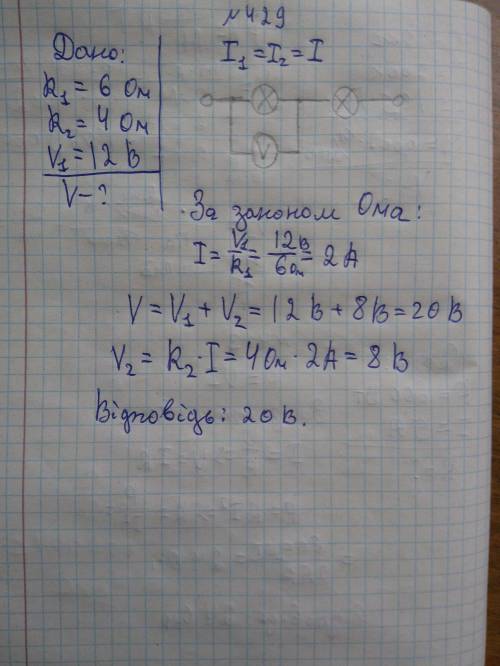 №429
Дано:
I₁ = I₂ = I
R₁ = 6 Ом
R₂ = 4 Ом
V₁ = 12 В
V - ?
V
За законом Ома:
I = V₁/R₁ = 12В/6Ом = 2 А
V = V₁ + V₂ = 12 В + 8 В = 20 В
V₂ = R₂ · I = 4 Ом · 2А = 8 В
Відповідь: 20 В.